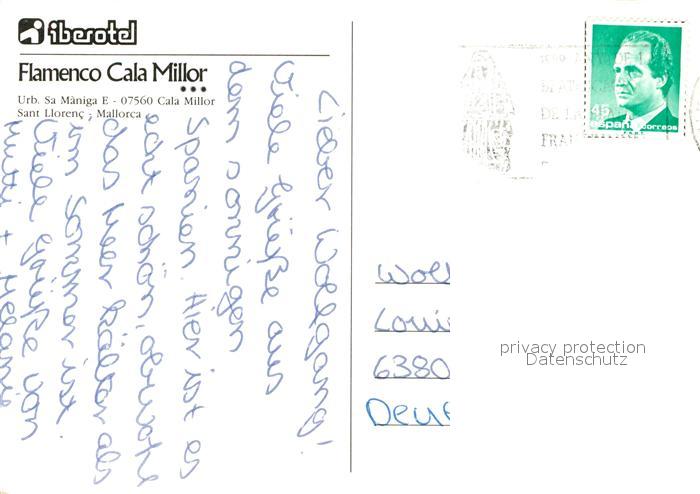 iberotel
Flamenco Cala Millor
Urb. Sa Màniga E - 07560 Cala Millor
Sant Llorenç - Mallorca
Lieber Wolfgang!
Viele Grüße aus
dem sonnigen
Spanien. Hier ist es
echt schön, obwohl
das Meer kälter als
im Sommer ist.
Viele Grüße von
Mutti + Melanie
45
españa correos
DE LA
Wol
Loui
6380
Deu
privacy protection
Datenschutz